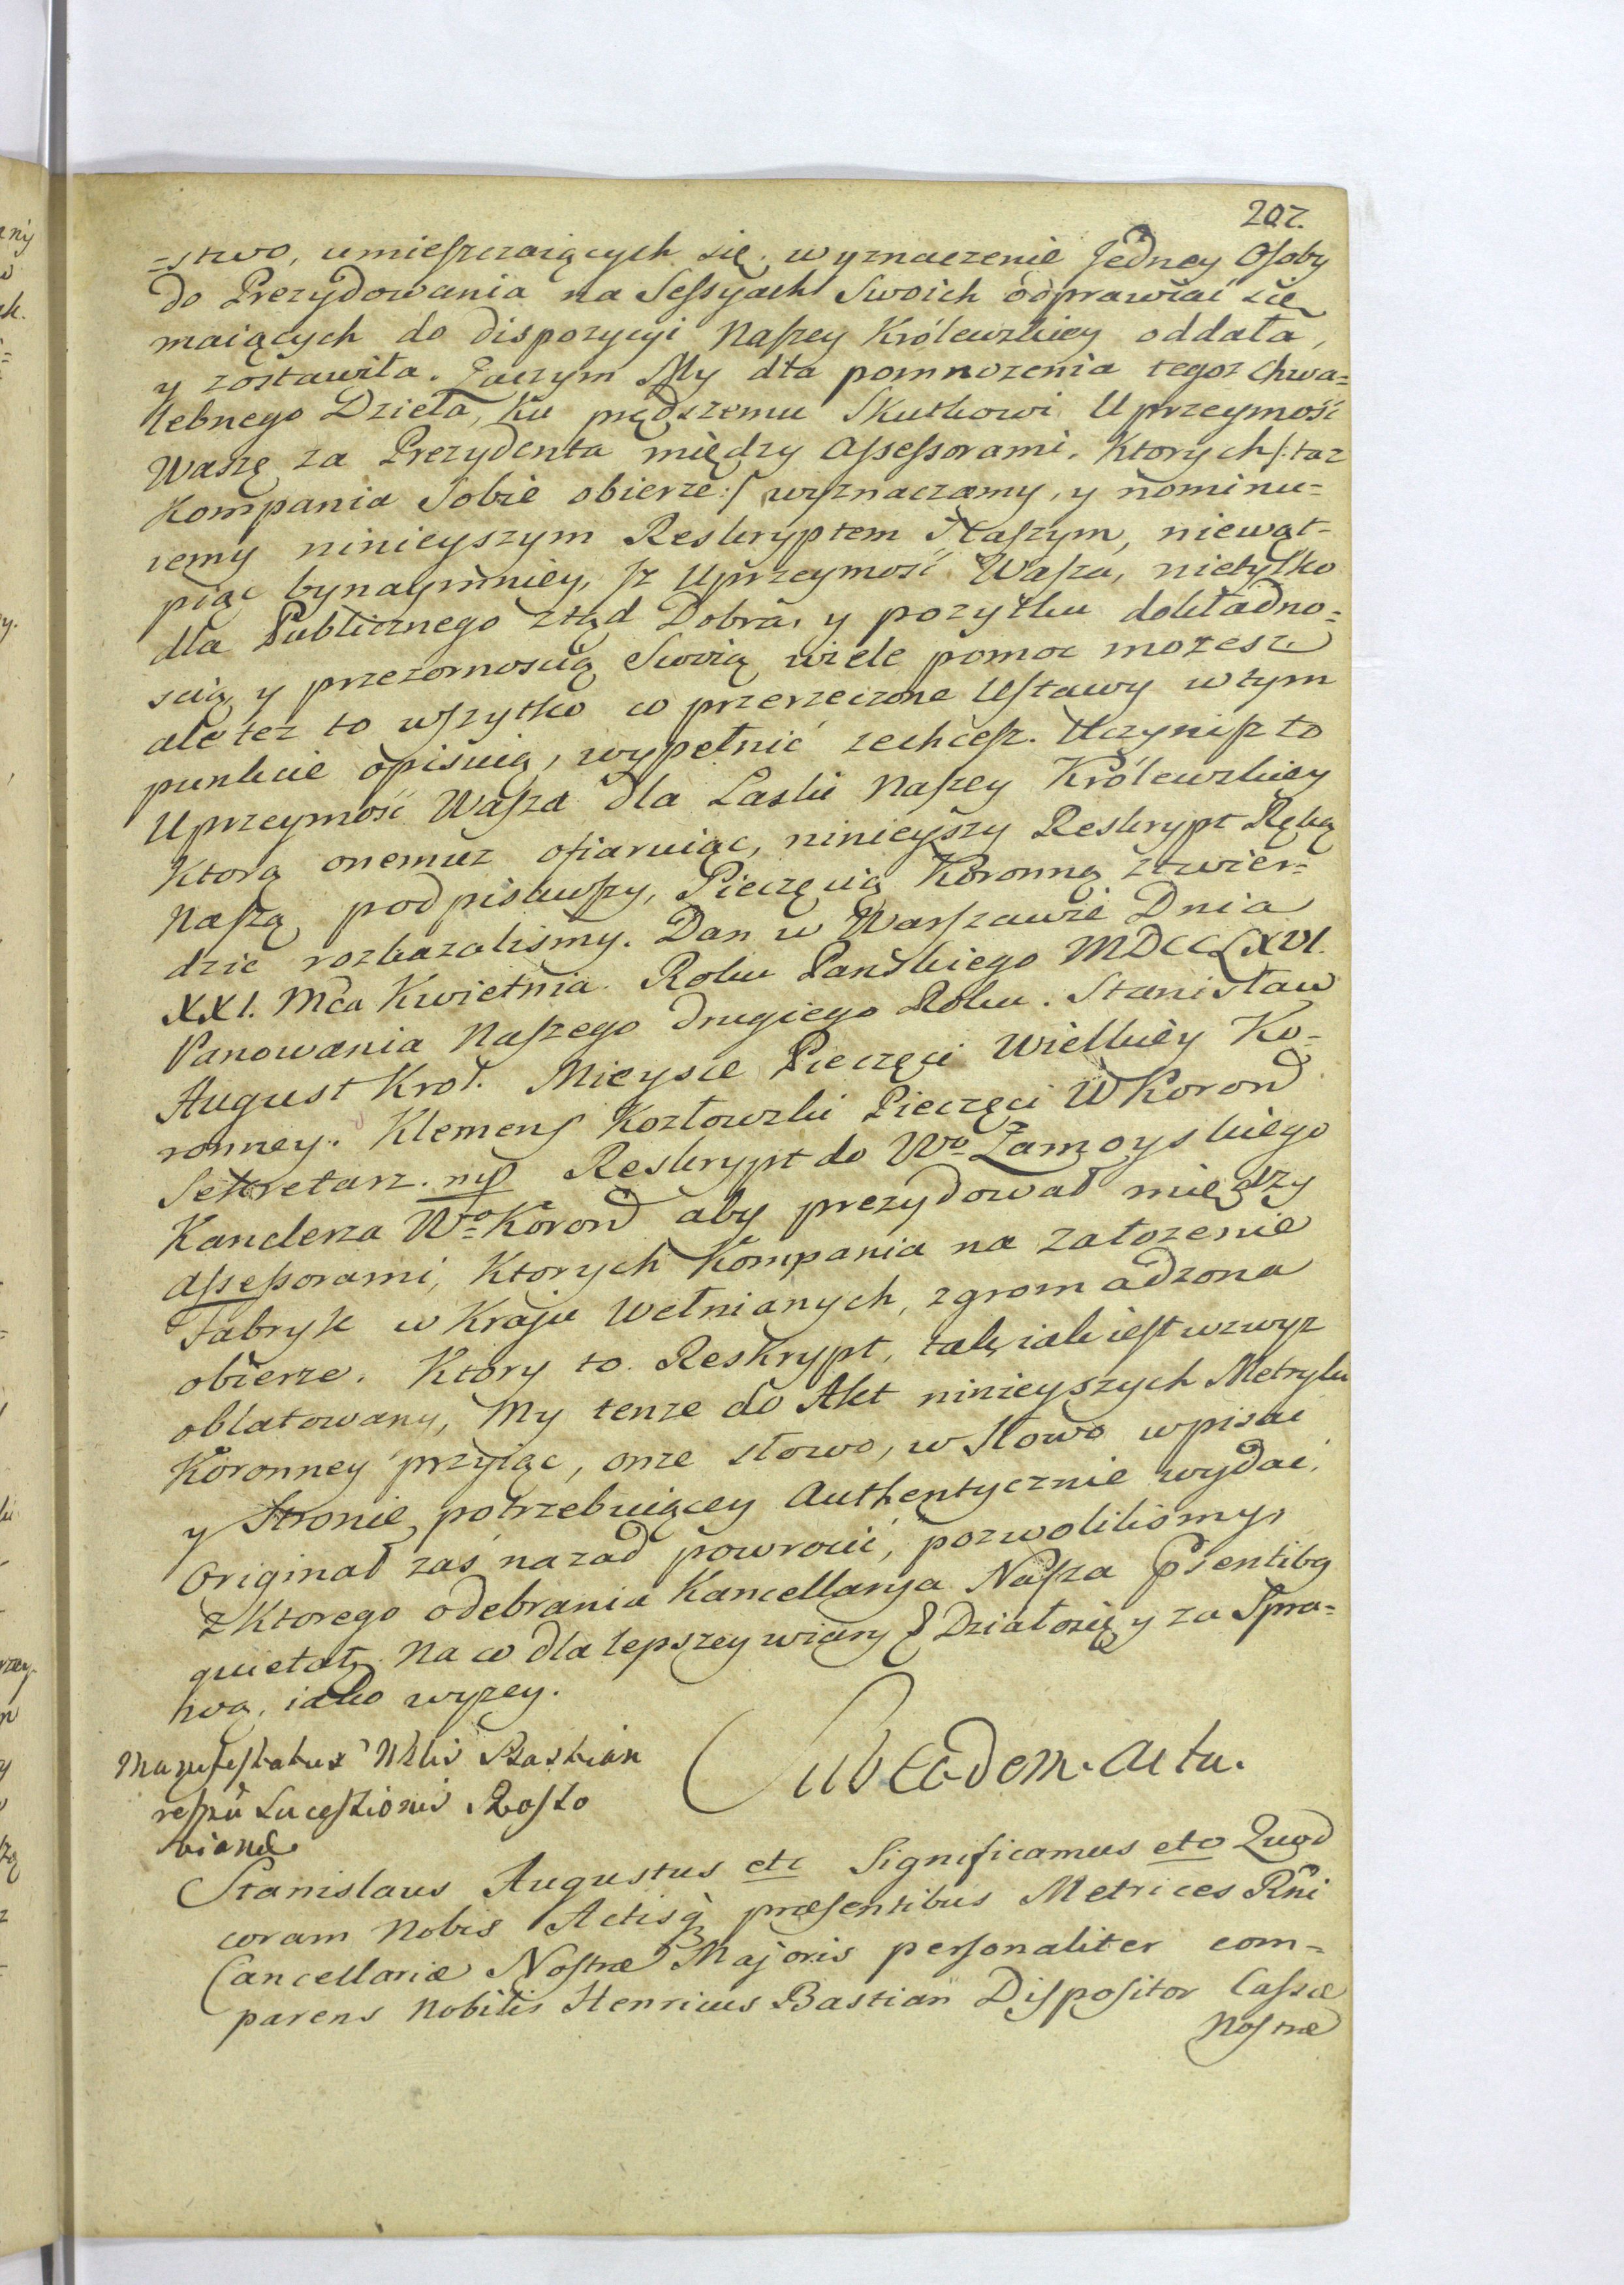 202.
=stwo, umieszczaiących się. wyznaczenie Jedney Osoby
do Prezydowania na Sessyach Swoich odprawiać się
maiących do dispozycyi Naszey Królewskiey oddała,
y zostawiła. Zaczym My dla pomnozenia tegoz Chwa=
lebnego Dzieła, ku prędszemu Skutkowi Uprzeymość
Waszę za Prezydenta między Assessorami. Ktorych /: taz
Kompania Sobie obierze :/ wyznaczamy, y nominu=
iemy ninieyszym Reskryptem Naszym, niewąt-
piąc bynaymniey, Jz Uprzeymość Wasza, nietylko
dla Publicznego ztąd Dobra, y pozytku dokładno=
scią y przezornoscią Swoią wiele pomoc możesz
ale tez to wszytko co przerzeczone Ustawy w tym
punkcie opisuią, wypełnić zechcesz. Uczynisz to
Uprzeymość Wasza dla Łaski Naszey Królewskiey
Ktorą onemuz ofiaruiąc, ninieyszy Reskrypt Ręką
Naszą podpisawszy, Pieczęcią Koronną ztwier=
dzić rozkazalismy. Dan w Warszawie Dnia
XXI. Mca Kwietnia. Roku Pańskiego MDCCLXVI.
Panowania Naszego drugiego Roku. Stanisław
August Krol. Mieysce Pieczęci Wielkiey Ko=
ronney. Klemens Kozłowski Pieczęci W Koron
Sekretarz. mp Reskrypt do Wo Zamoyskiego
Kanclerza Wo Koron aby prezydował między
Assessorami, Ktorych Kompania na założenie
Fabryk w Kraju Wełnianych, zgromadzona
obierze. Ktory to Reskrypt, tak, iak iest wzwyz
oblatowany, My tenze do Akt ninieyszych Metryki
Koronney przyiąc, onze słowo, w Słowo wpisać
y Stronie potrzebuiącey Authentycznie wydać,
Originał zaś nazad powrocić, pozwolilismy,
z Ktorego odebrania Kancellarya Nasza p̃sentibq
quietat. Na co dla lepszey wiary & Działosię y za Spra=
wą, iako wyzey.
Manifestatus Nblis Bastian
resp̃u Successionis Rosto
viana
Sub Eodem. Actu.
Stanislaus Augustus etc Significamus etc Quod
coram Nobis Actisq præsentibus Metrices Rñi
Cancellariæ Nostræ Majoris personaliter com=
parens Nobilis Henricus Bastian Dispositor Cassæ
Nostræ